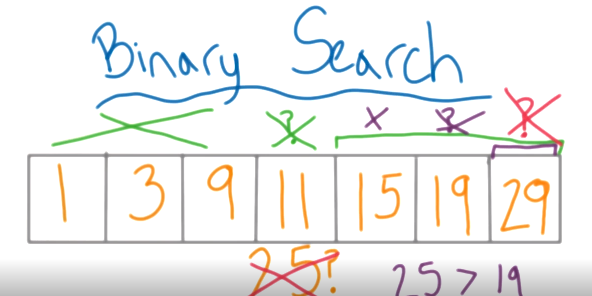 Binary Search
? × ? ?
1 3 9 11 15 19 29
25? 25 > 19